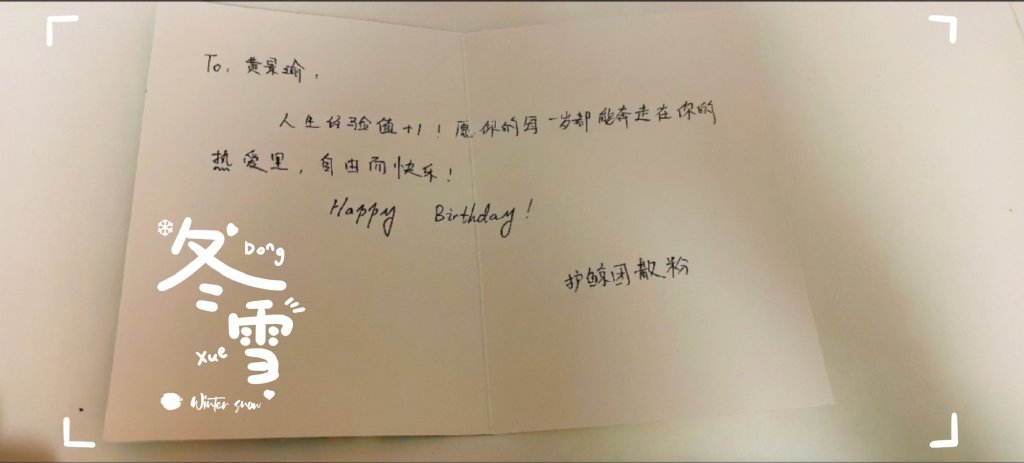 To. 黄景瑜,
人生经验值+1！愿你的每一岁都能奔走在你的
热爱里，自由而快乐！
Happy Birthday!
护鲸团散粉
冬
Dong
雪
xue
Winter snow